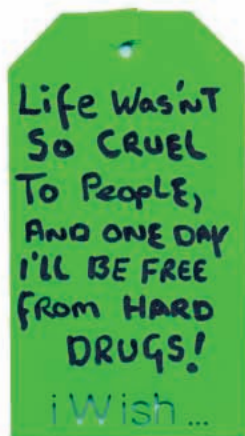 Life Was'nT
So CRUEL
To PeoplE,
AND ONE DAY
I'LL BE FREE
FROM HARD
DRUGS!
iWish...